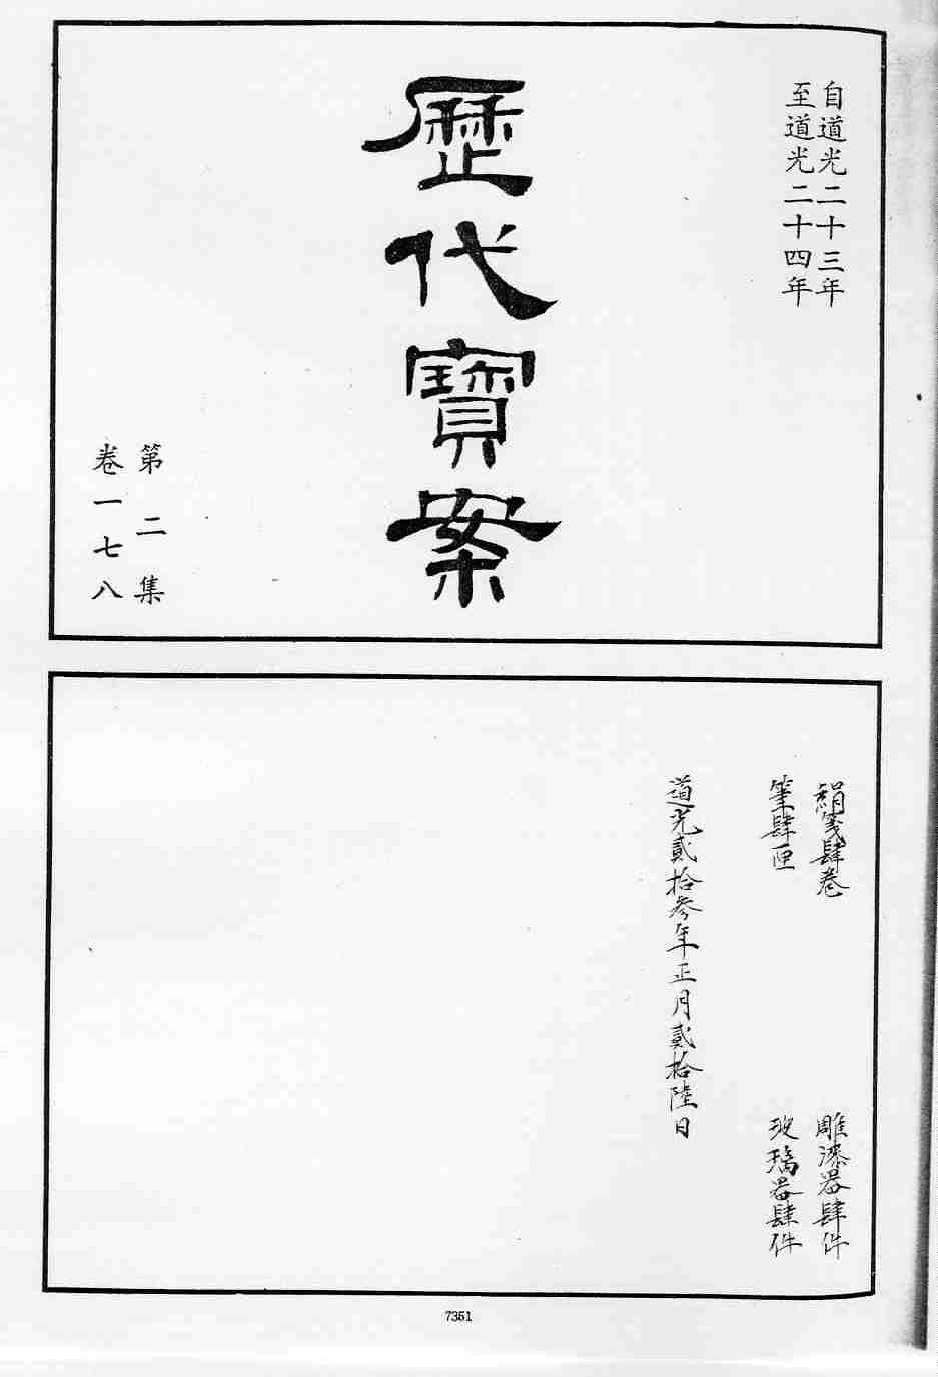 自道光二十三年
至道光二十四年
歷代寶案
第二集
卷一七八
絹箋肆卷
雕漆器肆件
筆肆匣
玻璃器肆件
道光貳拾參年正月貳拾陸日
7351